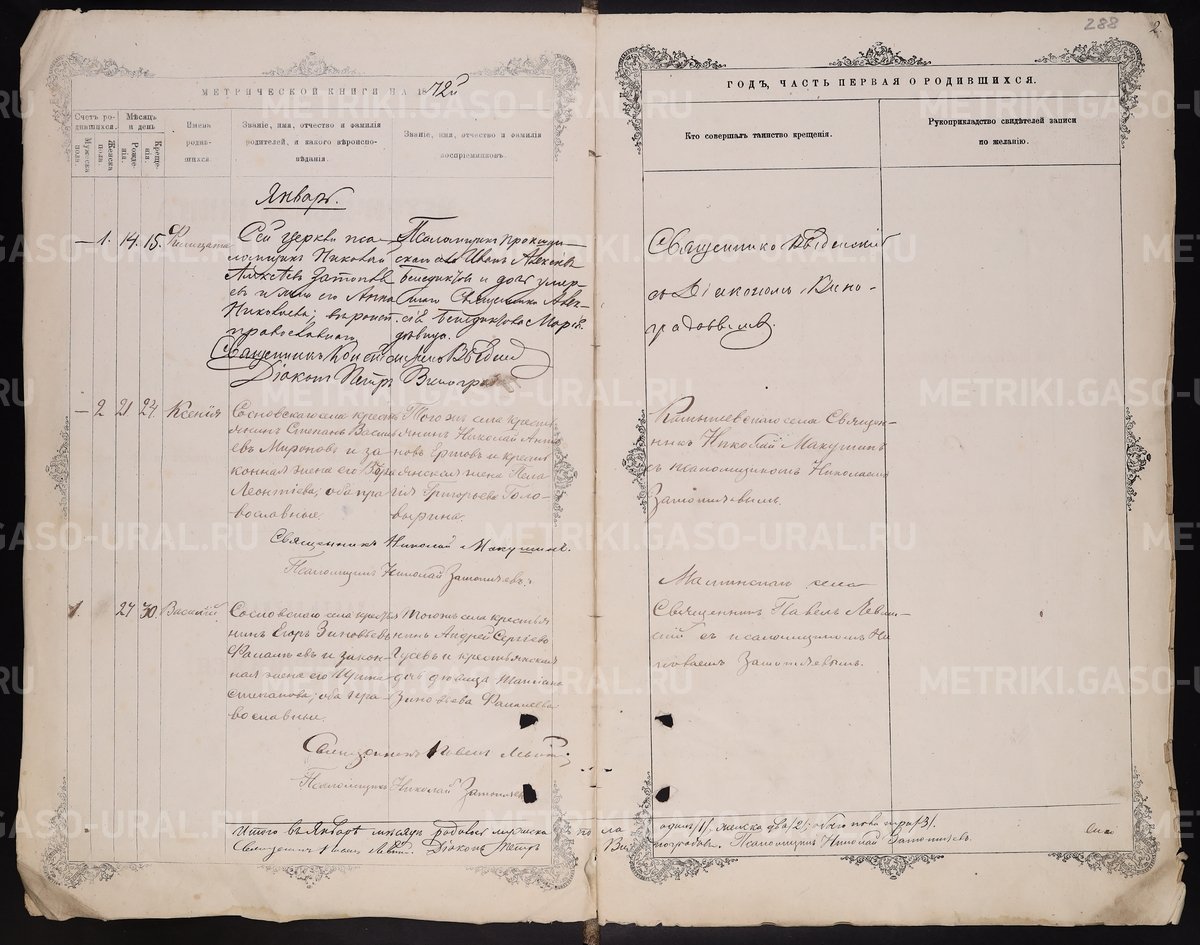 288
2
МЕТРИЧЕСКОЙ КНИГИ НА 1872й
ГОДЪ, ЧАСТЬ ПЕРВАЯ О РОДИВШИХСЯ.
Счетъ родившихся.
Мужеска пола.
Женска пола.
Мѣсяцъ и день
Рожденія.
Крещенія.
Имена родившихся.
Званіе, имя, отчество и фамилія родителей, и какого вѣроисповѣданія.
Званіе, имя, отчество и фамилія воспріемниковъ.
Кто совершалъ таинство крещенія.
Рукоприкладство свидѣтелей записи по желанію.
Январь.
— 1. 14. 15.
Сей церкви пса-
ломщикъ Николай
Алексѣевъ
его Анна
Николаева;
православнаго
Псаломщикъ
Иванъ Алексѣевъ
Бенедиктовъ и дочь умер-
шаго Священника
Бенедиктова Марія
дѣвица.
Священникъ
съ Діакономъ Вино-
градовымъ.
Священникъ
Діаконъ Петръ Виноградовъ
— 2 21 24 Ксенія
Сосновскаго села крестья-
янинъ Степанъ Василь-
евъ Мироновъ и за-
конная жена его
Леонтіева, оба пра-
вославные.
Тогожъ села кресть-
янинъ Николай Анто-
новъ и кресть-
янская жена Пела-
гія Григорьева Голо-
вырина.
Камышевскаго села Священ-
никъ Николай Макушинъ
съ псаломщикомъ Николаемъ
Затопляевымъ.
Священникъ Николай Макушинъ.
Псаломщикъ Николай Затопляевъ.
1. 27 30. Василій
Сосновскаго села крестья-
нинъ Егоръ Зиновьевъ
и закон-
ная жена его Ирина
Степанова; оба пра-
вославные.
Тогожъ села крестья-
нинъ Андрей Сергѣевъ
Гусевъ и крестьянская
дочь дѣвица Татіана
Зиновьева
села
Священникъ Павелъ Левит-
скій съ псаломщикомъ Ни-
колаемъ Затопляевымъ.
Священникъ Павелъ
Псаломщикъ Николай Затопляевъ
Итого въ Январѣ мѣсяцѣ родилось мужеска пола
одинъ /1/, женска два /2/; обоего пола три /3/.
Священникъ Діаконъ Петръ
Виноградовъ. Псаломщикъ Николай Затопляевъ.
METRIKI.GASO-URAL.RU